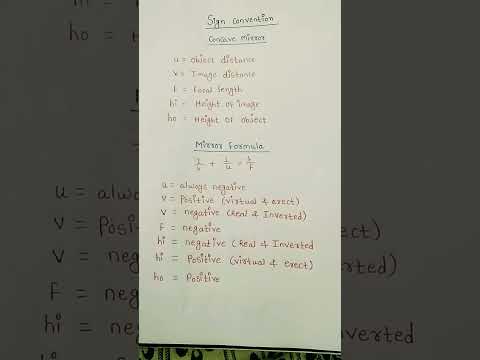 Sign convention
Concave Mirror
u = object distance
v = Image distance
f = Focal length
hi = Height of image
ho = Height of object
Mirror Formula
1/v + 1/u = 1/f
u = always negative
v = Positive (virtual & erect)
v = negative (Real & Inverted)
F = negative
hi = negative (Real & Inverted
hi = Positive (virtual & erect)
ho = Positive